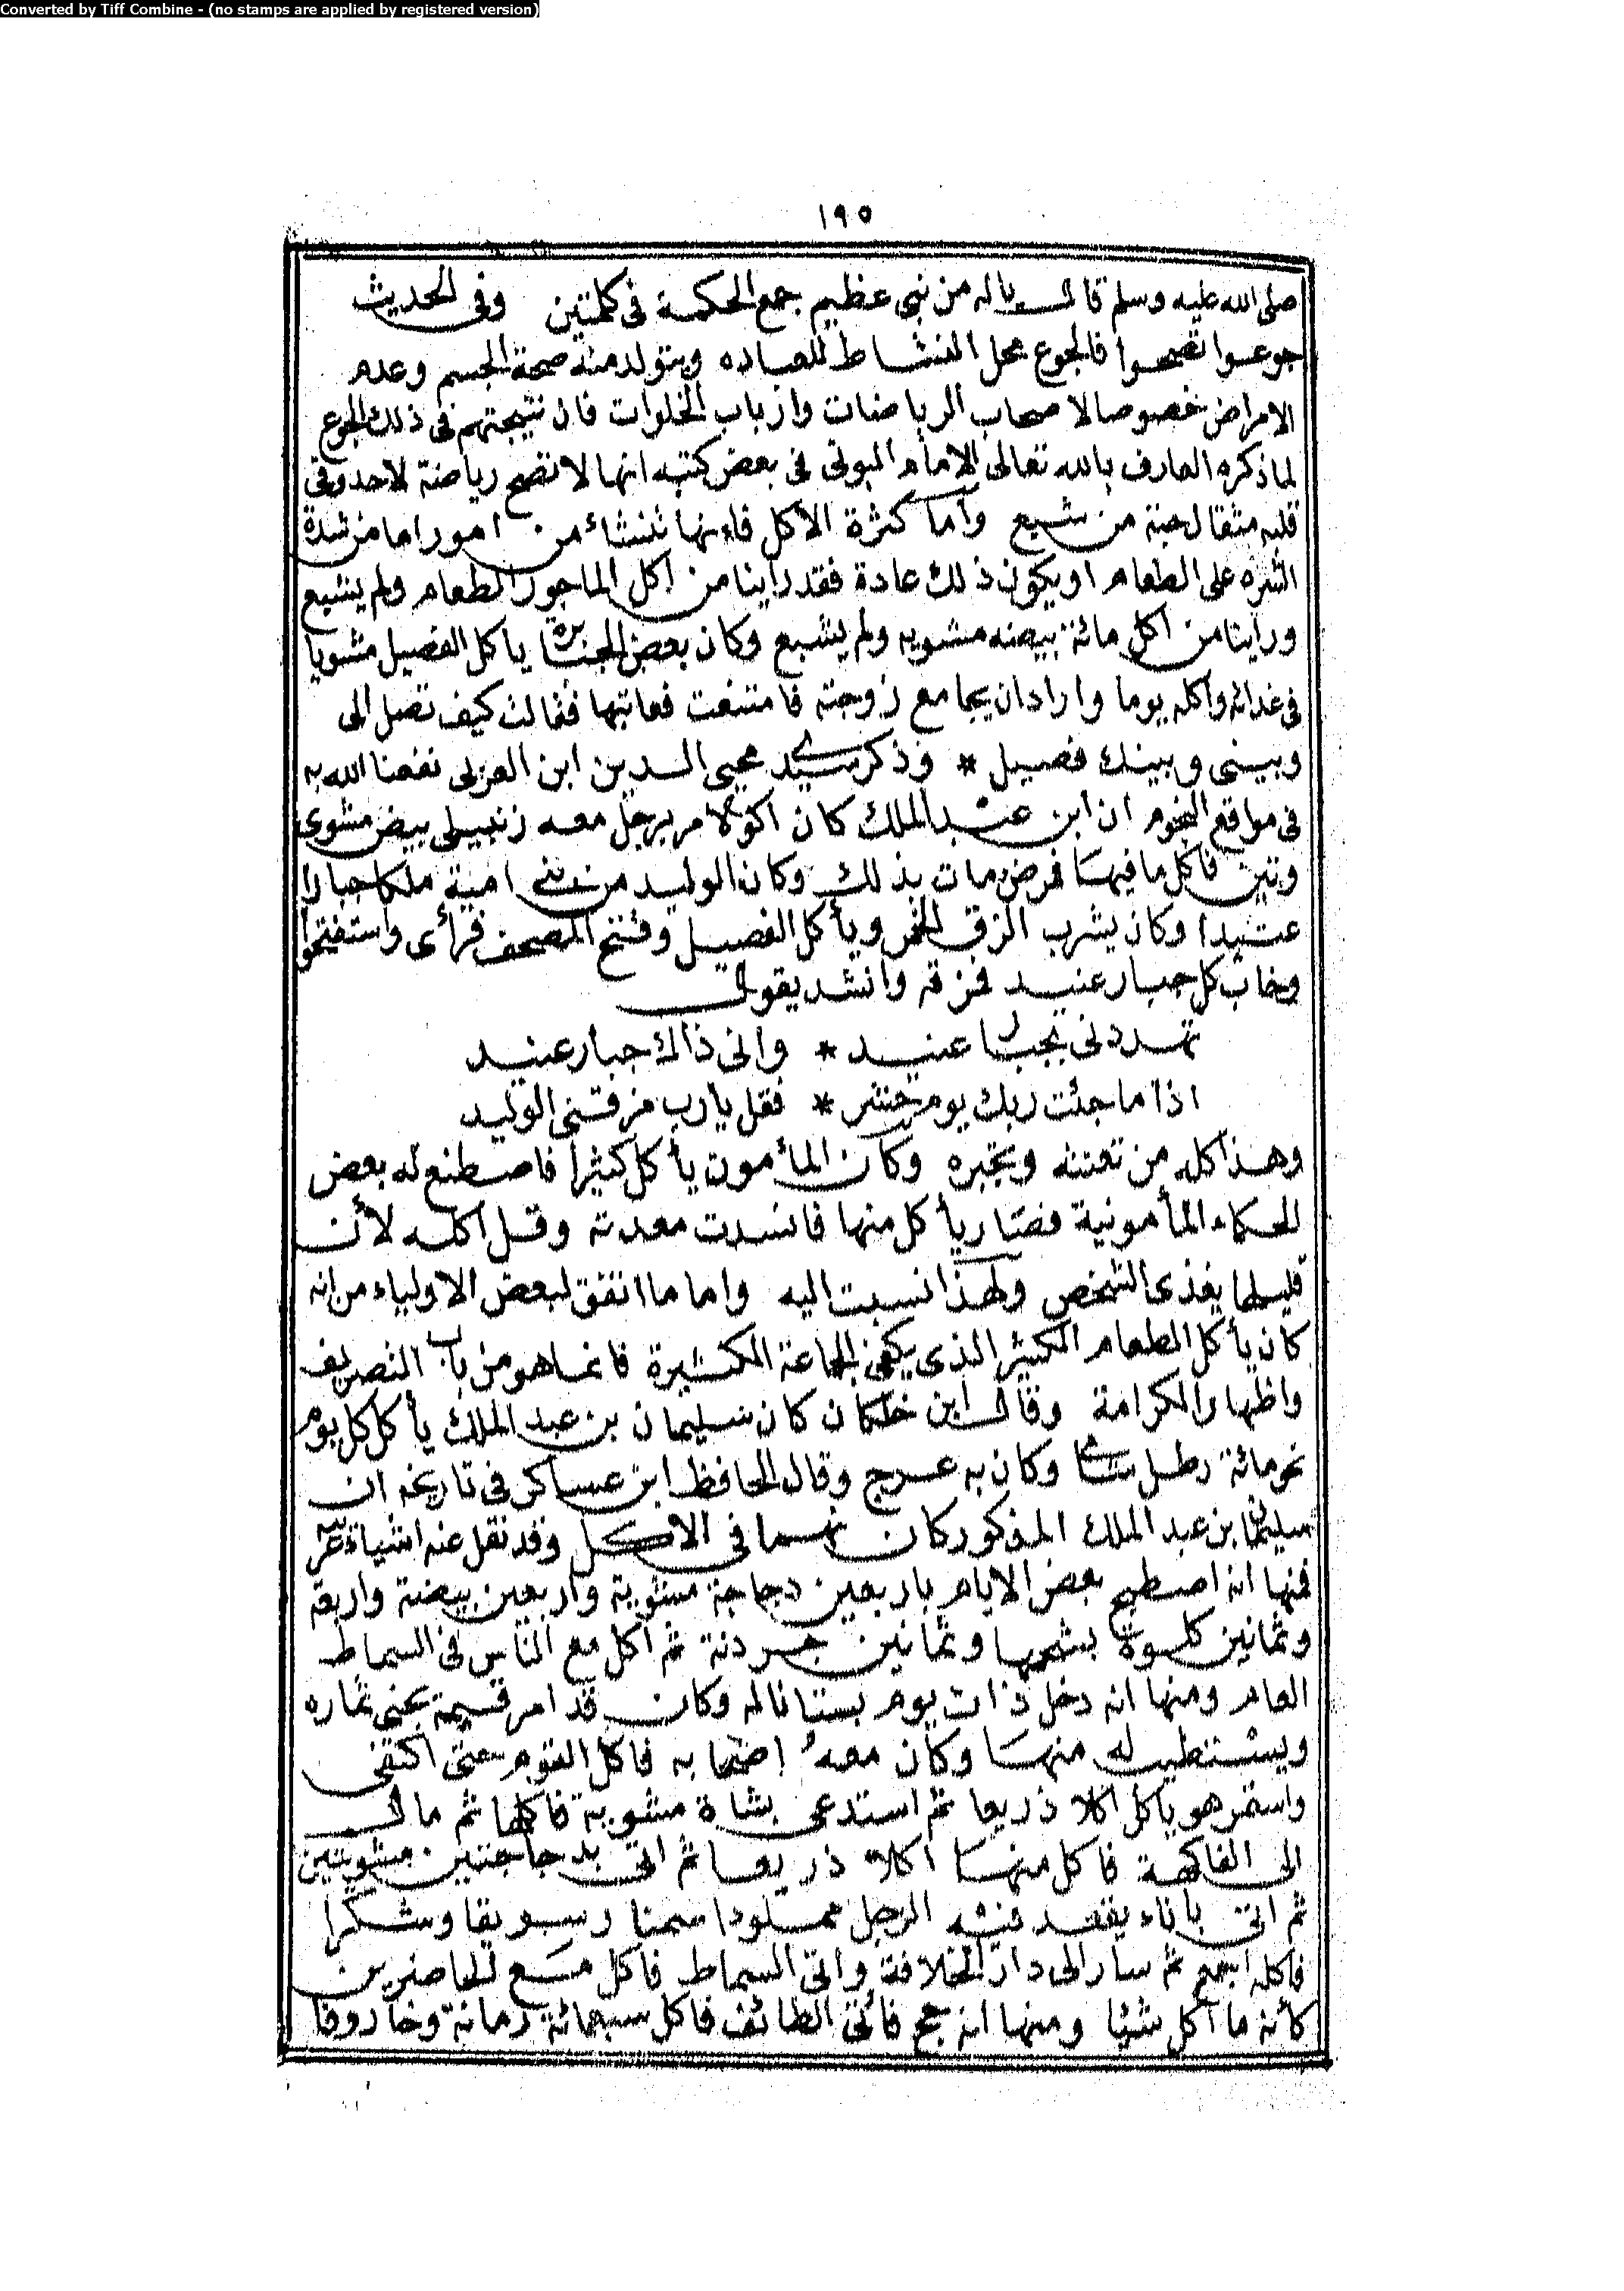 Converted by Tiff Combine - (no stamps are applied by registered version)
١٩٥
صلى الله عليه وسلم قال ياله من نبى عظيم جمع الحكمة فى كلمتين وفى الحديث
جوعوا تصحوا فالجوع محل النشاط للعباده ويتولد منه صحة الجسم وعدم
الامراض خصوصا لاصحاب الرياضات وارباب الخلوات فان نتيجتهم فى ذلك الجوع
لما ذكره العارف بالله تعالى الامام البونى فى بعض كتبه انها لا تصح رياضة لاحد وفى
قلبه مثقال حبة من شبع وأما كثرة الأكل فاءنها تنشاء من امور اما من شدة
الشره على الطعام او يكون ذلك عادة فقد راينا من اكل الماجور الطعام ولم يشبع
وراينا من اكل مائة بيضه مشويه ولم يشبع وكان بعض الجبابره ياكل الفصيل مشويا
فى غدائه وأكله يوما واراد ان يجامع زوجته فامتنعت فعاتبها فقالت كيف تصل الى
وبينى وبينك فصيل * وذكر سيدى محيى الدين ابن العربى نفعنا الله به
فى مواقع النجوم ان ابن عبد الملك كان اكولا مر برجل معه زنبيلى بيض مشوى
وتين فاكل ما فيها فمرض ومات بذلك وكان الوليد من بنى امية ملكا جبارا
عنيدا وكان يشرب الزق الخمر ويأكل الفصيل وفتح المصحف فرأى واستفتحوا
وخاب كل جبار عنيد فمزقه وانشد يقول
تهددنى بجبار عنيد * وانى ذاك جبار عنيد
اذا ما جئت ربك يوم حشر * فقل يارب مزقنى الوليد
وهذا كله من تعنته وتجبره وكان المأمون يأكل كثيرا فاصطنع له بعض
الحكماء المأمونية فصار يأكل منها فانسدت معدته وقل اكله لأن
قليلها يغذى الشخص ولهذا نسبت اليه واما ما اتفق لبعض الاولياء من انه
كان يأكل الطعام الكثير الذى يكفى الجماعة الكثيرة فانما هو من باب التصريف
واظهار الكرامة وقال ابن خلكان كان سليمان بن عبد الملك يأكل كل يوم
نحو مائة رطل شامى وكان به عرج وقال الحافظ ابن عساكر فى تاريخه ان
سليمان بن عبد الملك المذكور كان نهما فى الاكل وقد نقل عنه اشياء غريبه
فمنها انه اصطبح بعض الايام باربعين دجاجة مشوية واربعين بيضة واربعة
وثمانين كلوة بشحمها وثمانين جردنة ثم اكل مع الناس فى السماط
العام ومنها انه دخل ذات يوم بستانا له وكان قد امر قسيمه بجنى ثماره
ويستطيب له منها وكان معه اصحابه فاكل القوم حتى اكتفى
واستمر هو ياكل اكلا ذريعا ثم استدعى بشاة مشوية فأكلها ثم مال
الى الفاكهة فاكل منها اكلا ذريعا ثم اتى بدجاجتين مشويتين
ثم اتى باناء يقعد فيه الرجل مملودا سمنا وسويقا وسكرا
فاكله اجمع ثم سار الى دار الخلافة وأتى السماط فاكل مع الحاضرين
كأنه ما اكل شيئا ومنها انه حج فأتى الطائف فاكل سبعمائة رمانة وخاروفا